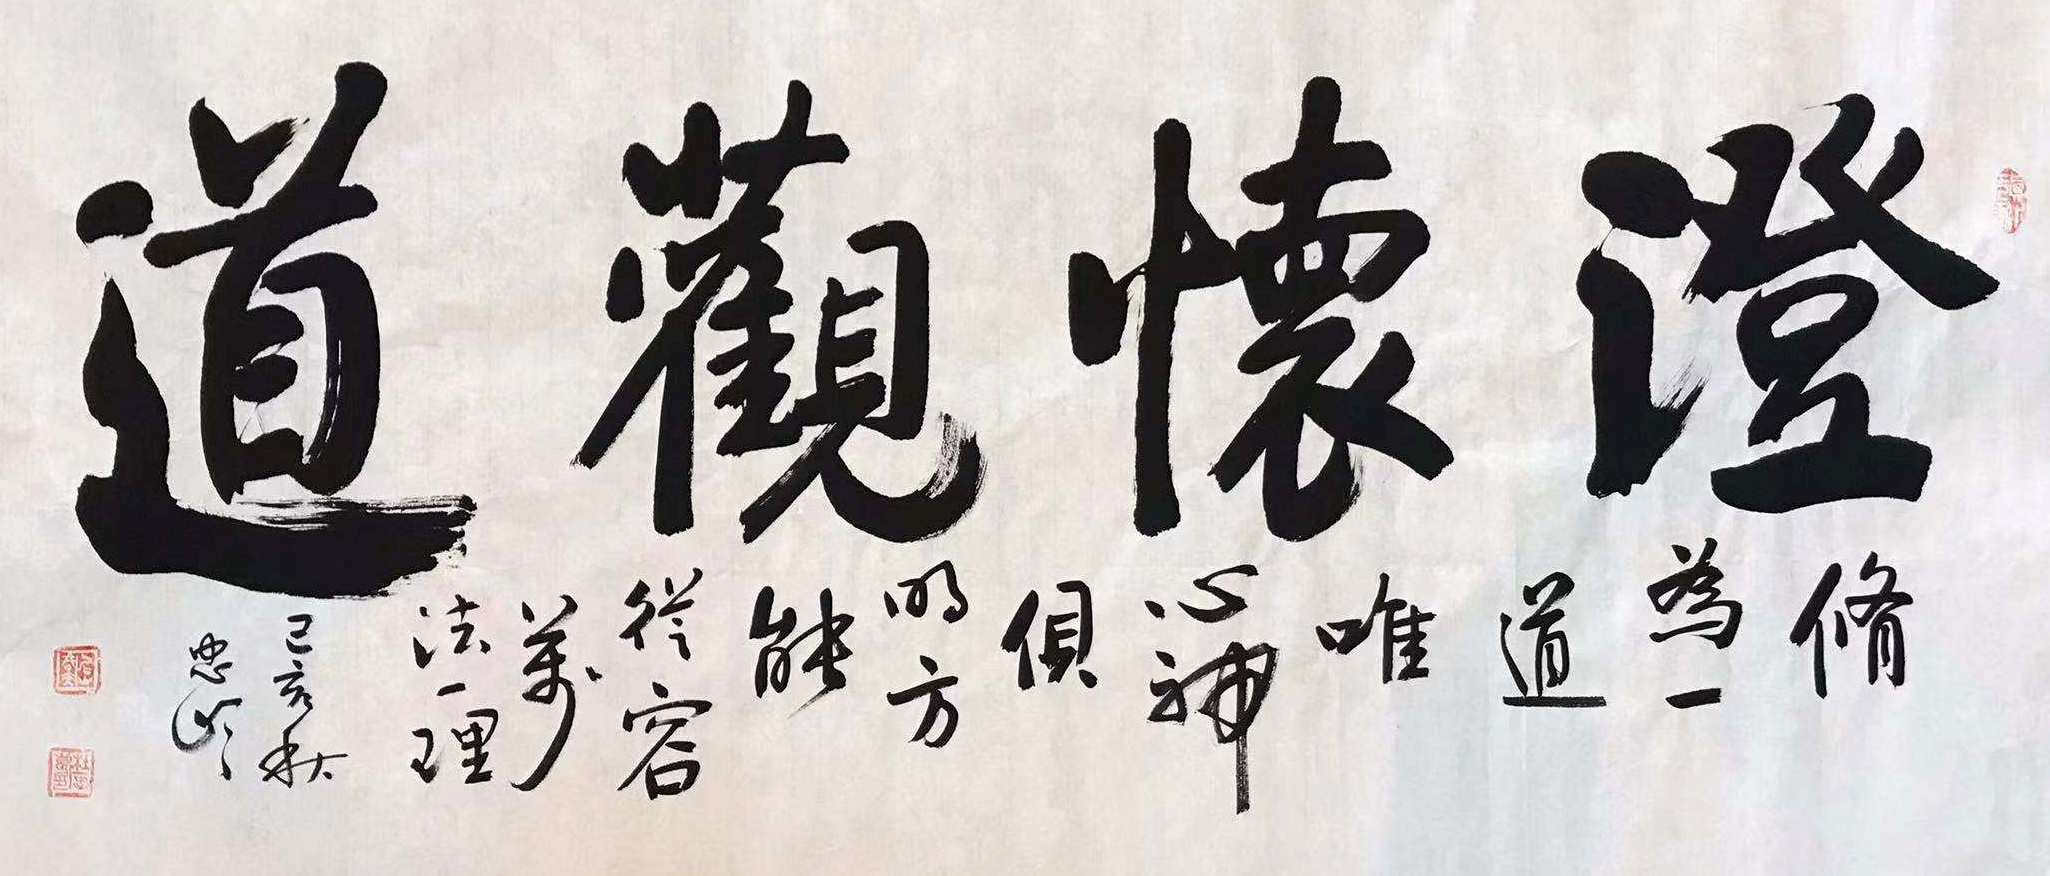 澄懷觀道
脩
為一
道
唯
心神
俱
明方
能
從容
萬
法一理
己亥秋
忠